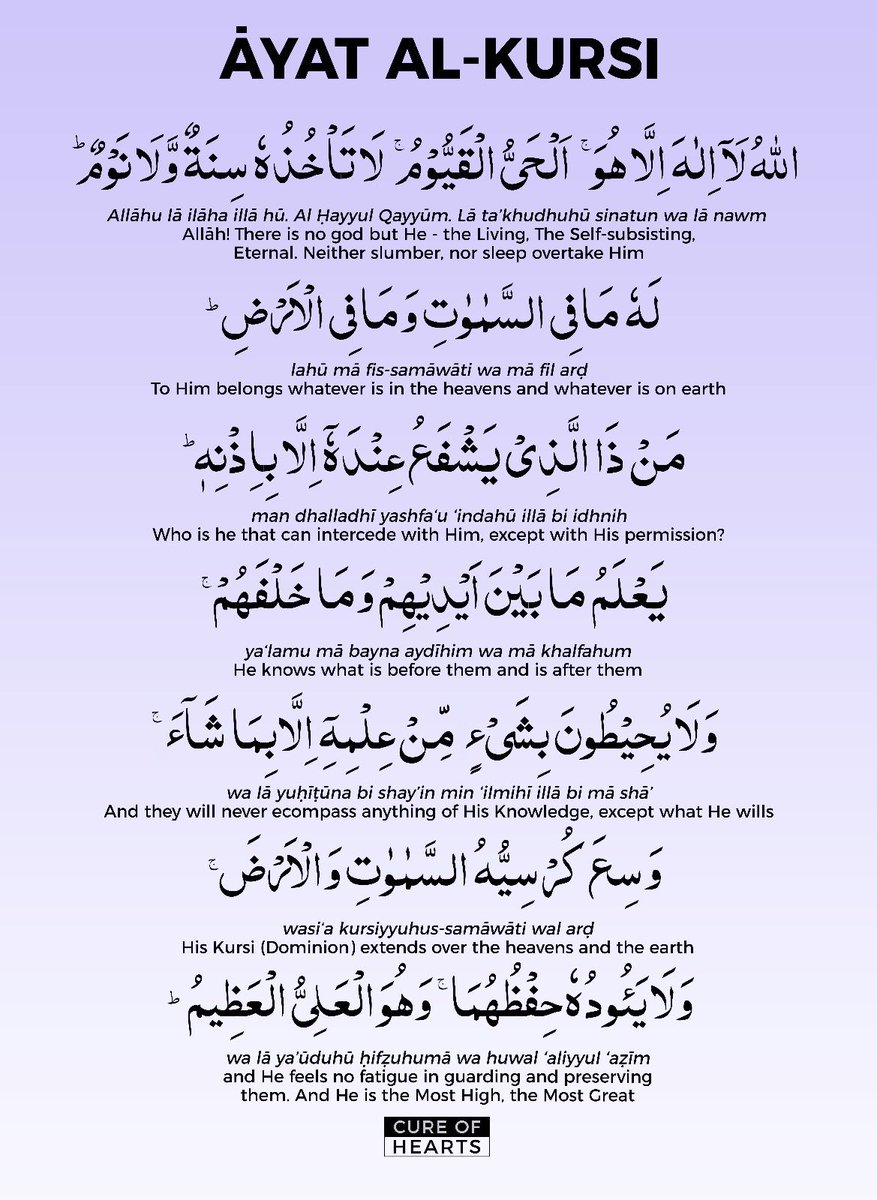 ĀYAT AL-KURSI
اَللّٰهُ لَاۤ اِلٰهَ اِلَّا هُوَ ۚ اَلْحَىُّ الْقَيُّوْمُ ۚ لَا تَاْخُذُهٗ سِنَةٌ وَّلَا نَوْمٌ ؕ
Allāhu lā ilāha illā hū. Al Ḥayyul Qayyūm. Lā ta’khudhuhū sinatun wa lā nawm
Allāh! There is no god but He - the Living, The Self-subsisting,
Eternal. Neither slumber, nor sleep overtake Him
لَهٗ مَا فِى السَّمٰوٰتِ وَمَا فِى الْاَرْضِ ؕ
lahū mā fis-samāwāti wa mā fil arḍ
To Him belongs whatever is in the heavens and whatever is on earth
مَنْ ذَا الَّذِىْ يَشْفَعُ عِنْدَهٗۤ اِلَّا بِاِذْنِهٖ ؕ
man dhalladhī yashfa‘u ‘indahū illā bi idhnih
Who is he that can intercede with Him, except with His permission?
يَعْلَمُ مَا بَيْنَ اَيْدِيْهِمْ وَمَا خَلْفَهُمْ ۚ
ya‘lamu mā bayna aydīhim wa mā khalfahum
He knows what is before them and is after them
وَلَا يُحِيْطُونَ بِشَىْءٍ مِّنْ عِلْمِهٖۤ اِلَّا بِمَا شَآءَ ۚ
wa lā yuḥīṭūna bi shay’in min ‘ilmihī illā bi mā shā’
And they will never ecompass anything of His Knowledge, except what He wills
وَسِعَ كُرْسِيُّهُ السَّمٰوٰتِ وَالْاَرْضَ ۚ
wasi‘a kursiyyuhus-samāwāti wal arḍ
His Kursi (Dominion) extends over the heavens and the earth
وَلَا يَئُودُهٗ حِفْظُهُمَا ۚ وَهُوَ الْعَلِىُّ الْعَظِيمُ ؕ
wa lā ya’ūduhū ḥifẓuhumā wa huwal ‘aliyyul ‘aẓīm
and He feels no fatigue in guarding and preserving
them. And He is the Most High, the Most Great
CURE OF
HEARTS